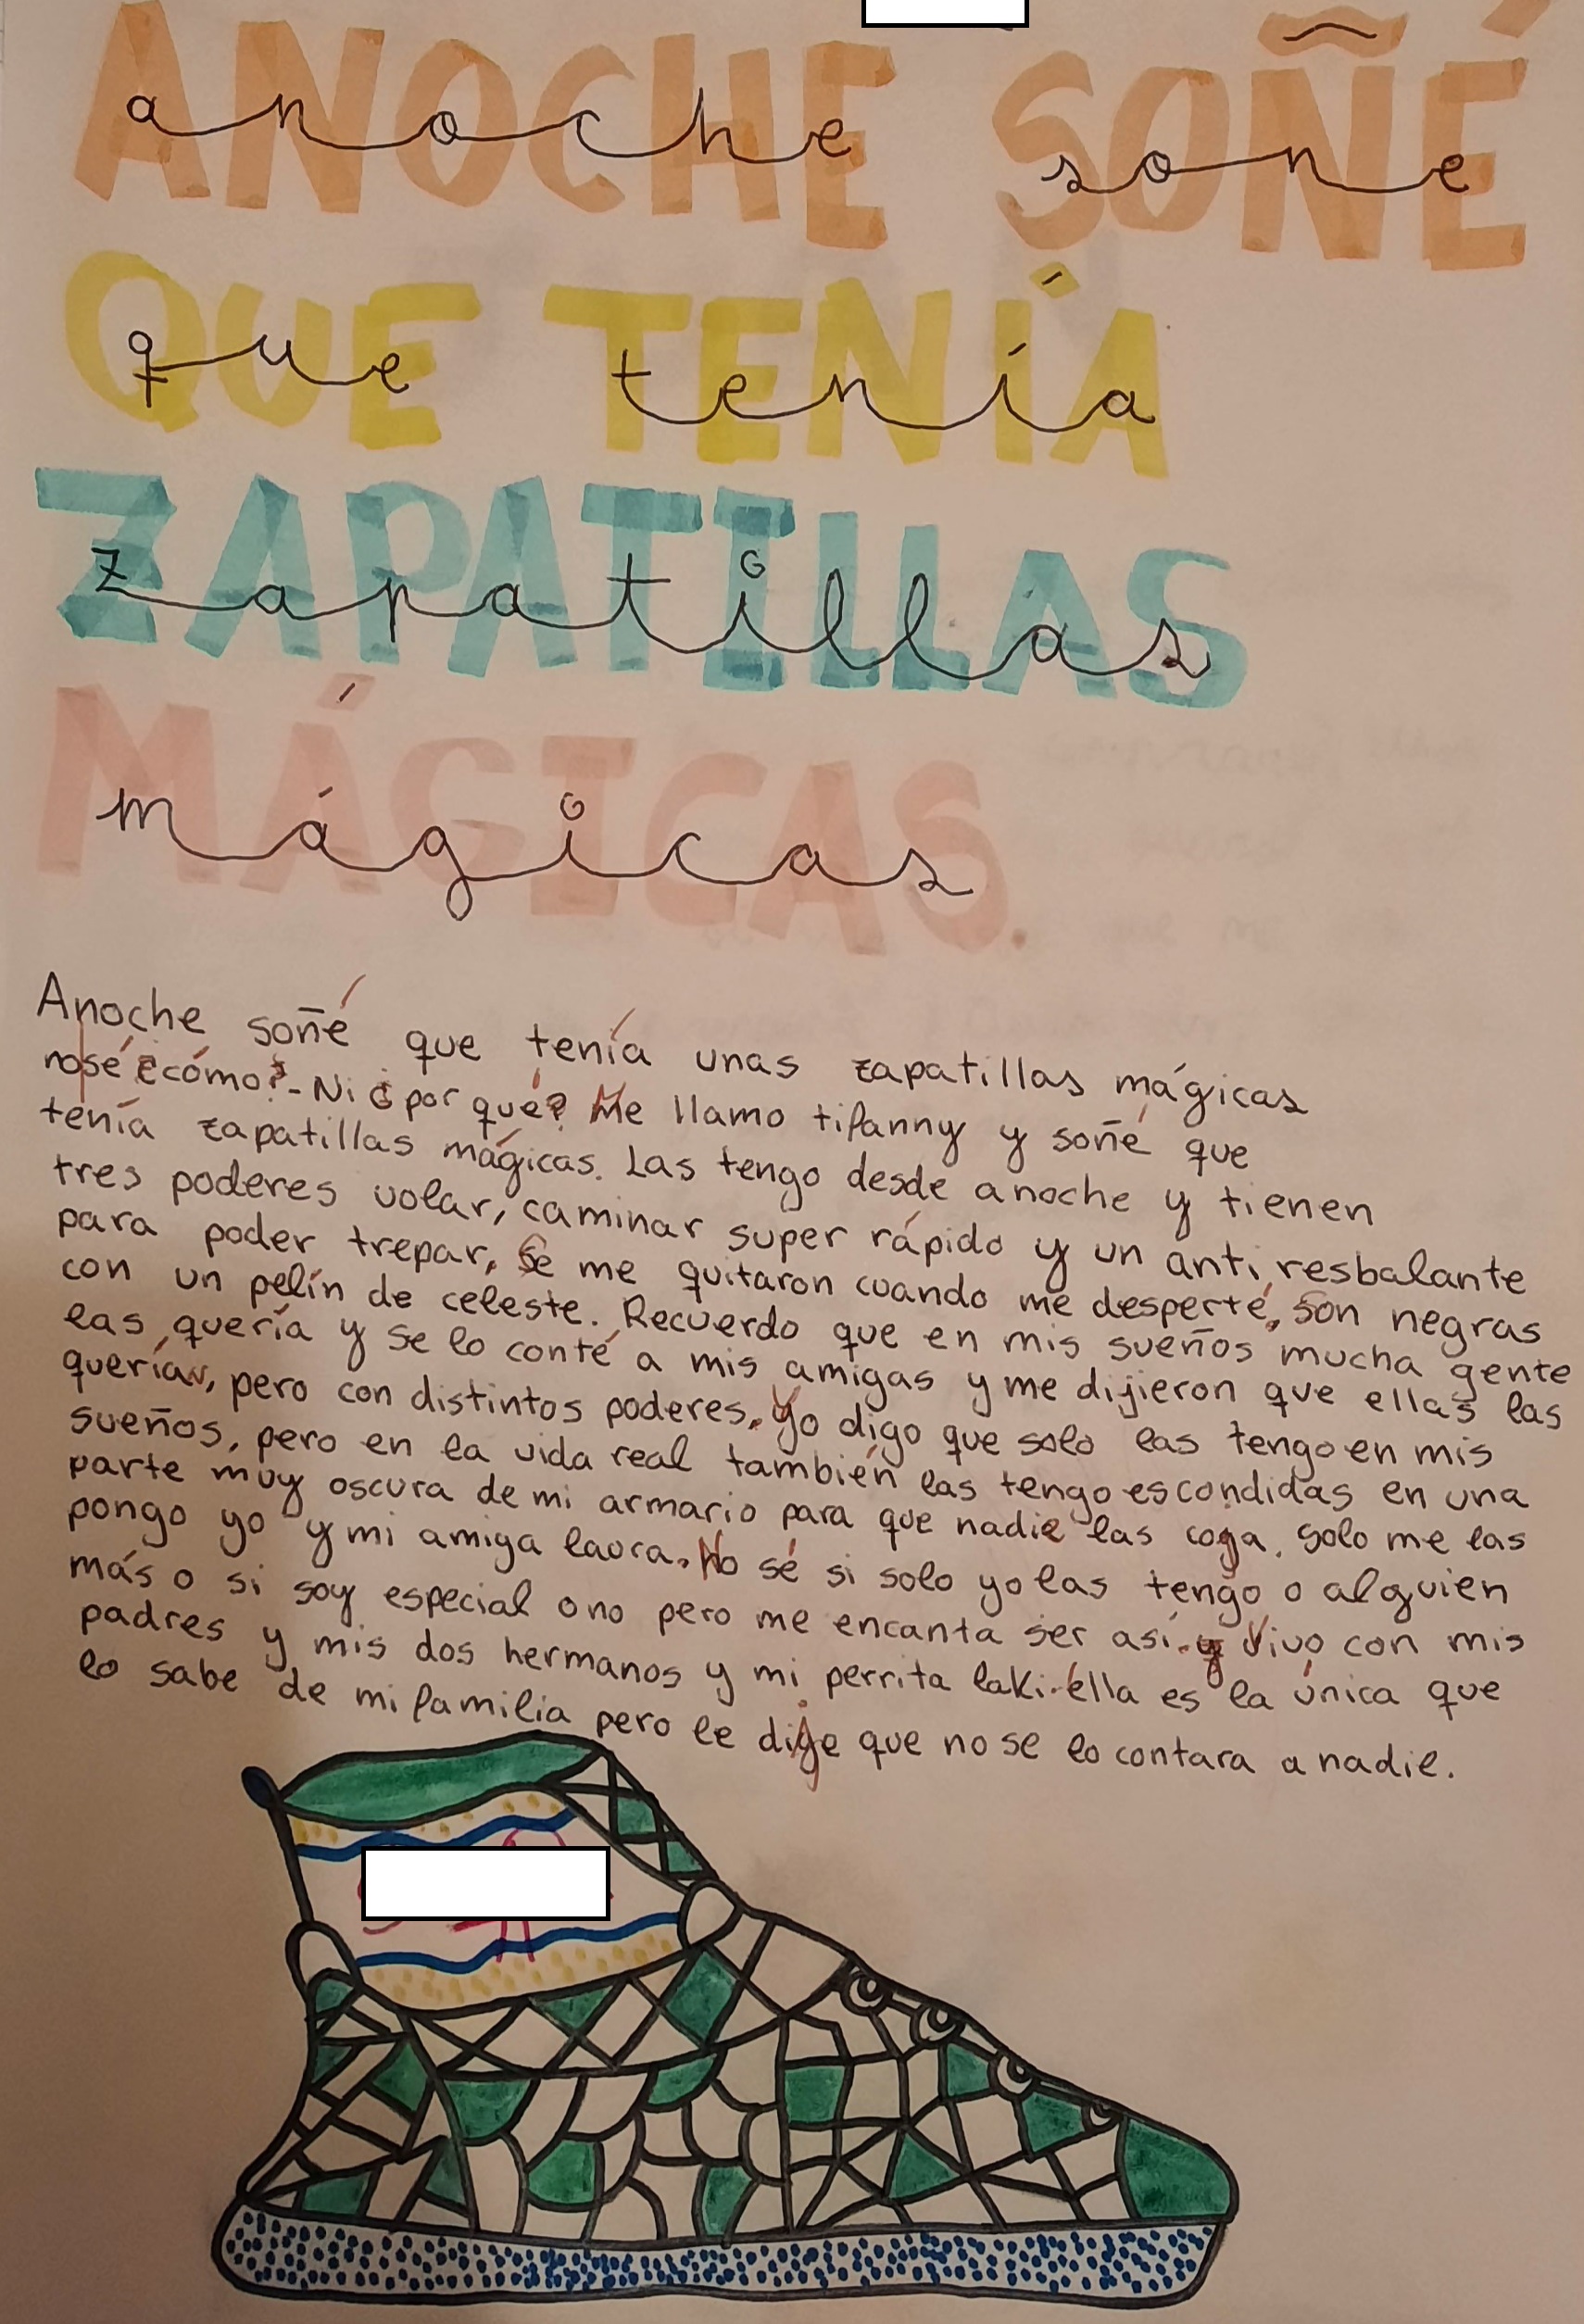 ANOCHE SOÑÉ
anoche soñe
QUE TENÍA
que tenía
ZAPATILLAS
zapatillas
MÁGICAS.
mágicas
Anoche soñé que tenía unas zapatillas mágicas
nosé ¿cómo?- Ni ¿por qué? Me llamo tifanny y soñé que
tenía zapatillas mágicas. Las tengo desde anoche y tienen
tres poderes volar, caminar super rápido y un anti resbalante
para poder trepar, se me quitaron cuando me desperté, son negras
con un pelín de celeste. Recuerdo que en mis sueños mucha gente
las quería y se lo conté a mis amigas y me dijieron que ellas las
querían, pero con distintos poderes. Yo digo que solo las tengo en mis
sueños, pero en la vida real también las tengo escondidas en una
parte muy oscura de mi armario para que nadie las coga. Solo me las
pongo yo y mi amiga laura. No sé si solo yo las tengo o alguien
más o si soy especial o no pero me encanta ser así. y Vivo con mis
padres y mis dos hermanos y mi perrita laki. élla es la única que
lo sabe de mi familia pero le dije que no se lo contara a nadie.